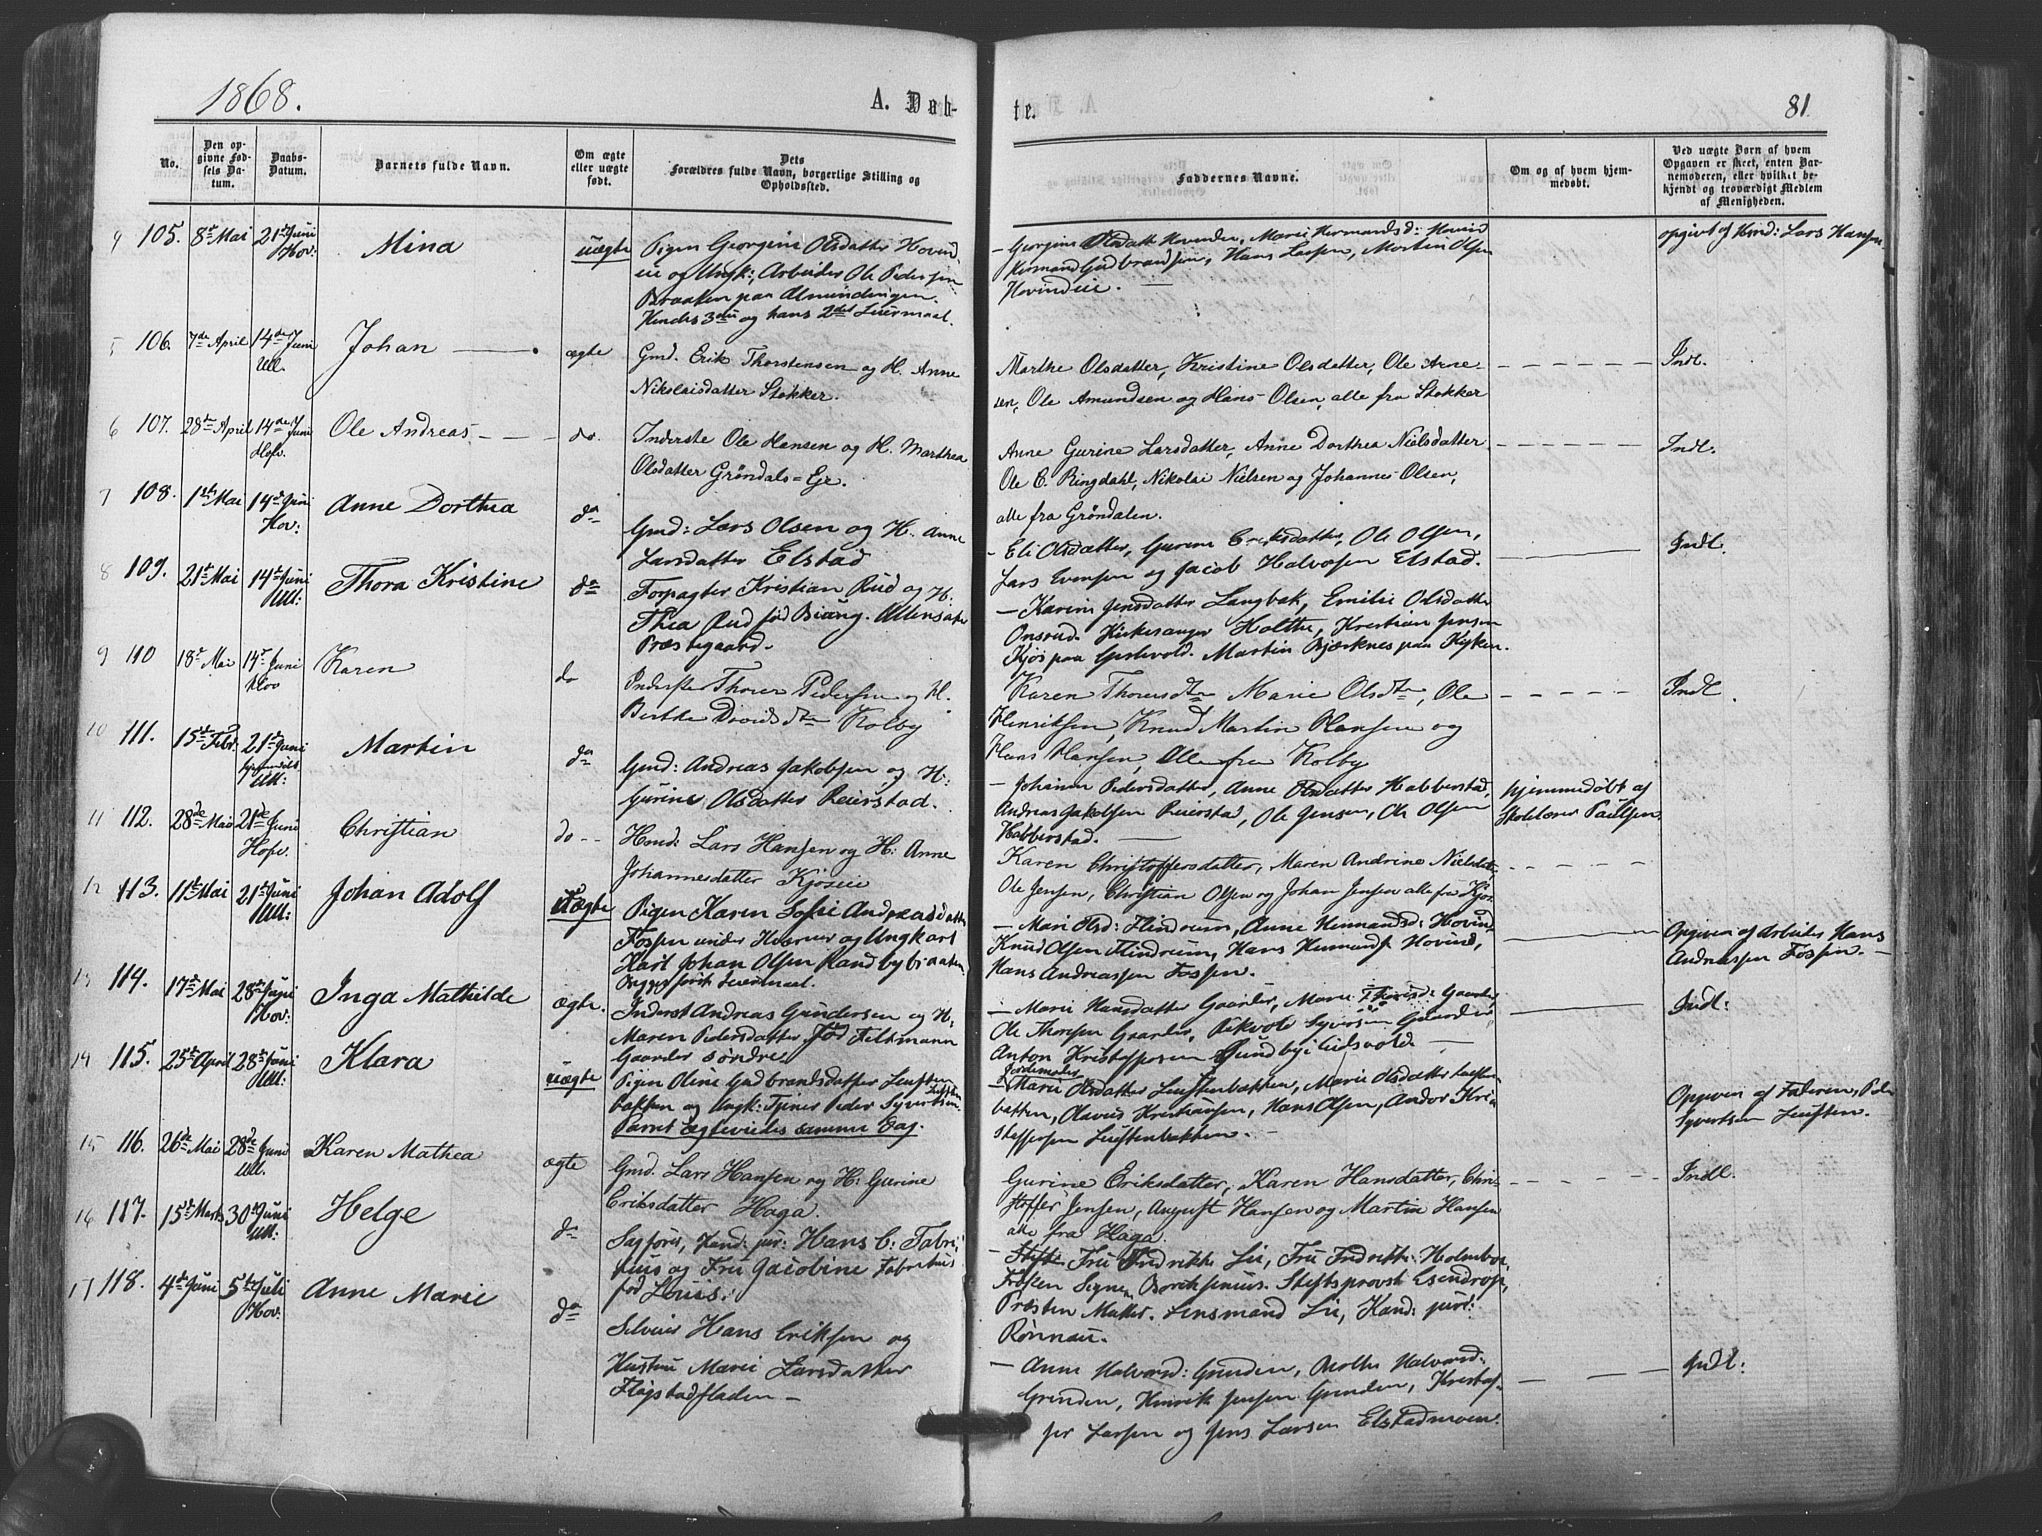 1868.
A. Døb-
te.
81.
No.
Den op-
givne Fød-
sels Da-
tum.
Daabs-
Datum.
Barnets fulde Navn.
Om ægte
eller uægte
født.
Dets
Forældres fulde Navn, borgerlige Stilling og
Opholdssted.
Faddernes Navne.
Om og af hvem hjem-
medøbt.
Ved uægte Børn af hvem
Opgaven er skeet, enten Bar-
nemoderen, eller hvilket be-
kjendt og troværdigt Medlem
af Menigheden.
105. 8de Mai 21de Juni Hov: Mina uægte
Pigen Georgine Olsdatter Hovind
eie og Ungk: Arbeider Ole Pedersen
Braaten paa Almindingen.
Hendes 3die og hans 2det Leiermaal.
Georgine Olsdatt Hovindeie, Marie Hermandsd: Hovind
Hermand Gudbrandsen, Hans Larsen, Morten Olsen
Hovindeie.
opgivt af Hmd: Lars Hansen
106. 7de April 14de Juni Ull. Johan ægte
Gmd. Erik Thorstensen og H. Anne
Nikolaisdatter Stokker.
Marthe Olsdatter, Kristine Olsdatter, Ole Arne-
sen, Ole Amundsen og Hans Olsen, alle fra Stokker
Indl.
107. 28de April 14de Juni Hofv. Ole Andreas do.
Inderste Ole Hansen og H. Marthea
Olsdatter Grøndals=Ejr.
Anne Gurine Larsdatter, Anne Dorthea Nielsdatter
Ole C. Ringdahl, Nikolai Nielsen og Johannes Olsen,
alle fra Grøndalen.
Indl.
108. 1ste Mai 14de Juni Hov: Anne Dorthea do
Gmd: Lars Olsen og H. Anne
Larsdatter Elstad
Eli Olsdatter, Gurine Eriksdatter, Ole Olsen,
Lars Evensen og Jacob Halvorsen Elstad.
Indl.
109. 21de Mai 14de Juni Ull: Thora Kristine do
Forpagter Kristian Rud og H.
Thea Rud fød Biung. Ullensaker
Præstegaard.
Karine Jensdatter Langbak, Emilie Olsdatter
Onsrud. Kirkesanger Holthe, Kristian Jensen
Kjos paa Gjestvold. Martin Bjerknes paa Kyken.
110 18de Mai 14de Juni Hov Karen do
Inderster Thorer Pedersen og H.
Berthe Davidsdtr Kolby
Karen Thoresdtr Marie Olsdtr, Ole
Henriksen, Knud Martin Hansen og
Hans Hansen, Alle fra Kolby
Indl.
111. 15de Febr. 21de Juni Ull: Martin do
Gmd: Andreas Jakobsen og H:
Gurine Olsdatter Reierstad.
Johanne Pedersdatter, Anne Olsdatter Habberstad,
Andreas Jakobsen Reierstad, Ole Jensen, Ole Olsen
Habberstad.
hjemmedøbt af
Skolelærer Paulsen.
112. 28de Mai 21de Juni Hofv. Christian do
Hmd: Lars Hansen og H: Anne
Johannesdatter Kjoseie
Karen Christoffersdatter, Maren Andrine Nielsdtr,
Ole Jensen, Christian Olsen og Johan Jensen alle fra Kjos.
113. 11te Mai 21de Juni Ull: Johan Adolf Uægte
Pigen Karen Sofie Andreasdatter
Fossen under Hværner og Ungkarl
Karl Johan Olsen Randbybraaten
Begges første Leiermaal.
Mari Olsd: Flindrum, Anne Hermandsd: Hovind,
Knud Olsen Flindrum, Hans Hermands. Hovind,
Hans Andreassen Fossen.
Opgiven af Arbeider Hans
Andreassen Fossen.
114. 17de Mai 28de Juni Hov: Inga Mathilde ægte.
Inderst Andreas Gundersen og H.
Maren Pedersdatter fød Feltmann
Gaarder søndre
Marie Hansdatter Gaarder, Marie Thorsd: Gaarder,
Ole Thoresen Gaarder, Rikvold Syversen Gaarder
Anton Kristoffersen Sundby i Eidsvold
Indl:
115. 25de April 28de Juni Ull: Klara uægte
Pigen Oline Gudbrandsdatter Leusten
bakken og Ungk: Tjener Peder Syvertsen Leusten
Barnt Ægtevieds samme Dag.
Jordemoder
Marie Olsdatter Leustenbakken, Marie Olsdatter Leusten
bakken, Olavus Kristiansen, Hans Olsen, Andor Kri
stoffersen Leustenbakken.
Opgiven af Faderen, Peder
Syvertsen Leusten.
116. 26de Mai 28de Juni Ull. Karen Mathea ægte
Gmd. Lars Hansen og H: Gurine
Eriksdatter Haga.
Gurine Eriksdatter, Karen Hansdatter, Chri-
stoffer Jensen, August Hansen og Martin Hansen
alle fra Haga.
Indl.
117. 15de Marts 30de Juni Ull: Helge do
Sagfører, Kand: jur: Hans C: Fabri-
tius og Fru Jacobine Fabritius
fød Louis.
Fru Fredrikke Lie, Fru Fredrikke Holmboe,
Frøken Signe Borchsenius. Stiftsprovst Esendrop,
Præsten Müller. Lensmand Lie, Kand: jur:
Rønnau.
118. 4de Juni 5te Juli Hov: Anne Marie do
Selveier Hans Eriksen og
Hustru Marie Larsdatter
Flagstadfladen
Anne Halvorsd: Grinden, Marthe Halvorsd:
Grinden, Henrik Jensen Grinden, Kristof-
fer Larsen og Jens Larsen Elstadmoen.
Indl: